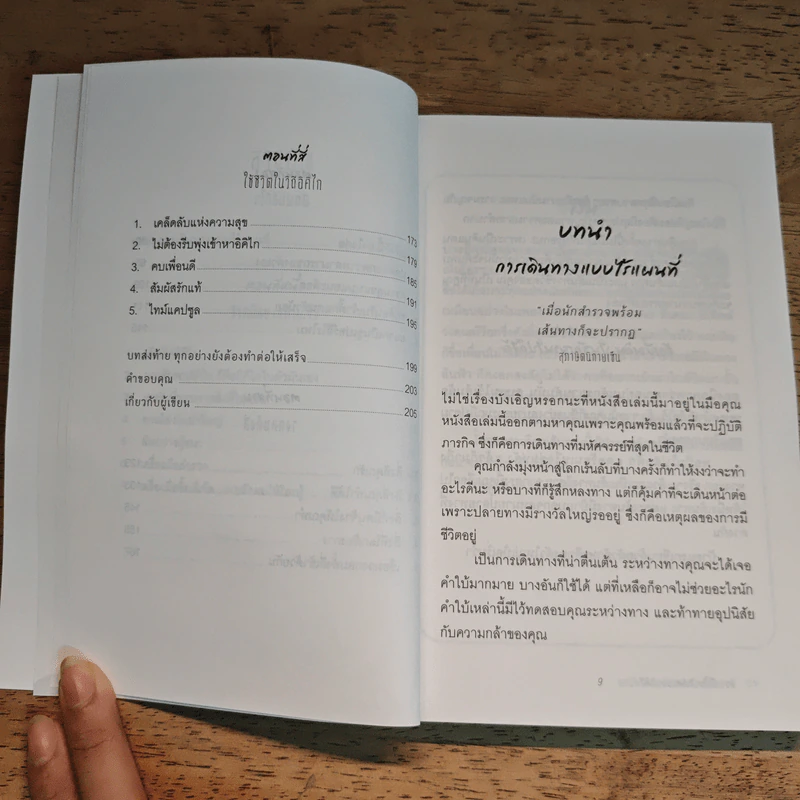 ตอนที่สี่
ใช้ชีวิตในวิถีอิคิไก
1. เคล็ดลับแห่งความสุข 173
2. ไม่ต้องรีบพุ่งเข้าหาอิคิไก 179
3. คบเพื่อนดี 185
4. สัมผัสรักแท้ 191
5. ไทม์แคปซูล 195
บทส่งท้าย ทุกอย่างยังต้องทำต่อให้เสร็จ 199
คำขอบคุณ 203
เกี่ยวกับผู้เขียน 205
บทนำ
การเดินทางแบบไร้แผนที่
"เมื่อนักสำรวจพร้อม
เส้นทางก็จะปรากฏ"
สุภาษิตนิกายเซ็น
ไม่ใช่เรื่องบังเอิญหรอกนะที่หนังสือเล่มนี้มาอยู่ในมือคุณ
หนังสือเล่มนี้ออกตามหาคุณเพราะคุณพร้อมแล้วที่จะปฏิบัติ
ภารกิจ ซึ่งก็คือการเดินทางที่มหัศจรรย์ที่สุดในชีวิต
คุณกำลังมุ่งหน้าสู่โลกเร้นลับที่บางครั้งก็ทำให้งงว่าจะทำ
อะไรดีนะ หรือบางทีก็รู้สึกหลงทาง แต่ก็คุ้มค่าที่จะเดินหน้าต่อ
เพราะปลายทางมีรางวัลใหญ่รออยู่ ซึ่งก็คือเหตุผลของการมี
ชีวิตอยู่
เป็นการเดินทางที่น่าตื่นเต้น ระหว่างทางคุณจะได้เจอ
คำใบ้มากมาย บางอันก็ใช้ได้ แต่ที่เหลือก็อาจไม่ช่วยอะไรนัก
คำใบ้เหล่านี้มีไว้ทดสอบคุณระหว่างทาง และท้าทายอุปนิสัย
กับความกล้าของคุณ
9